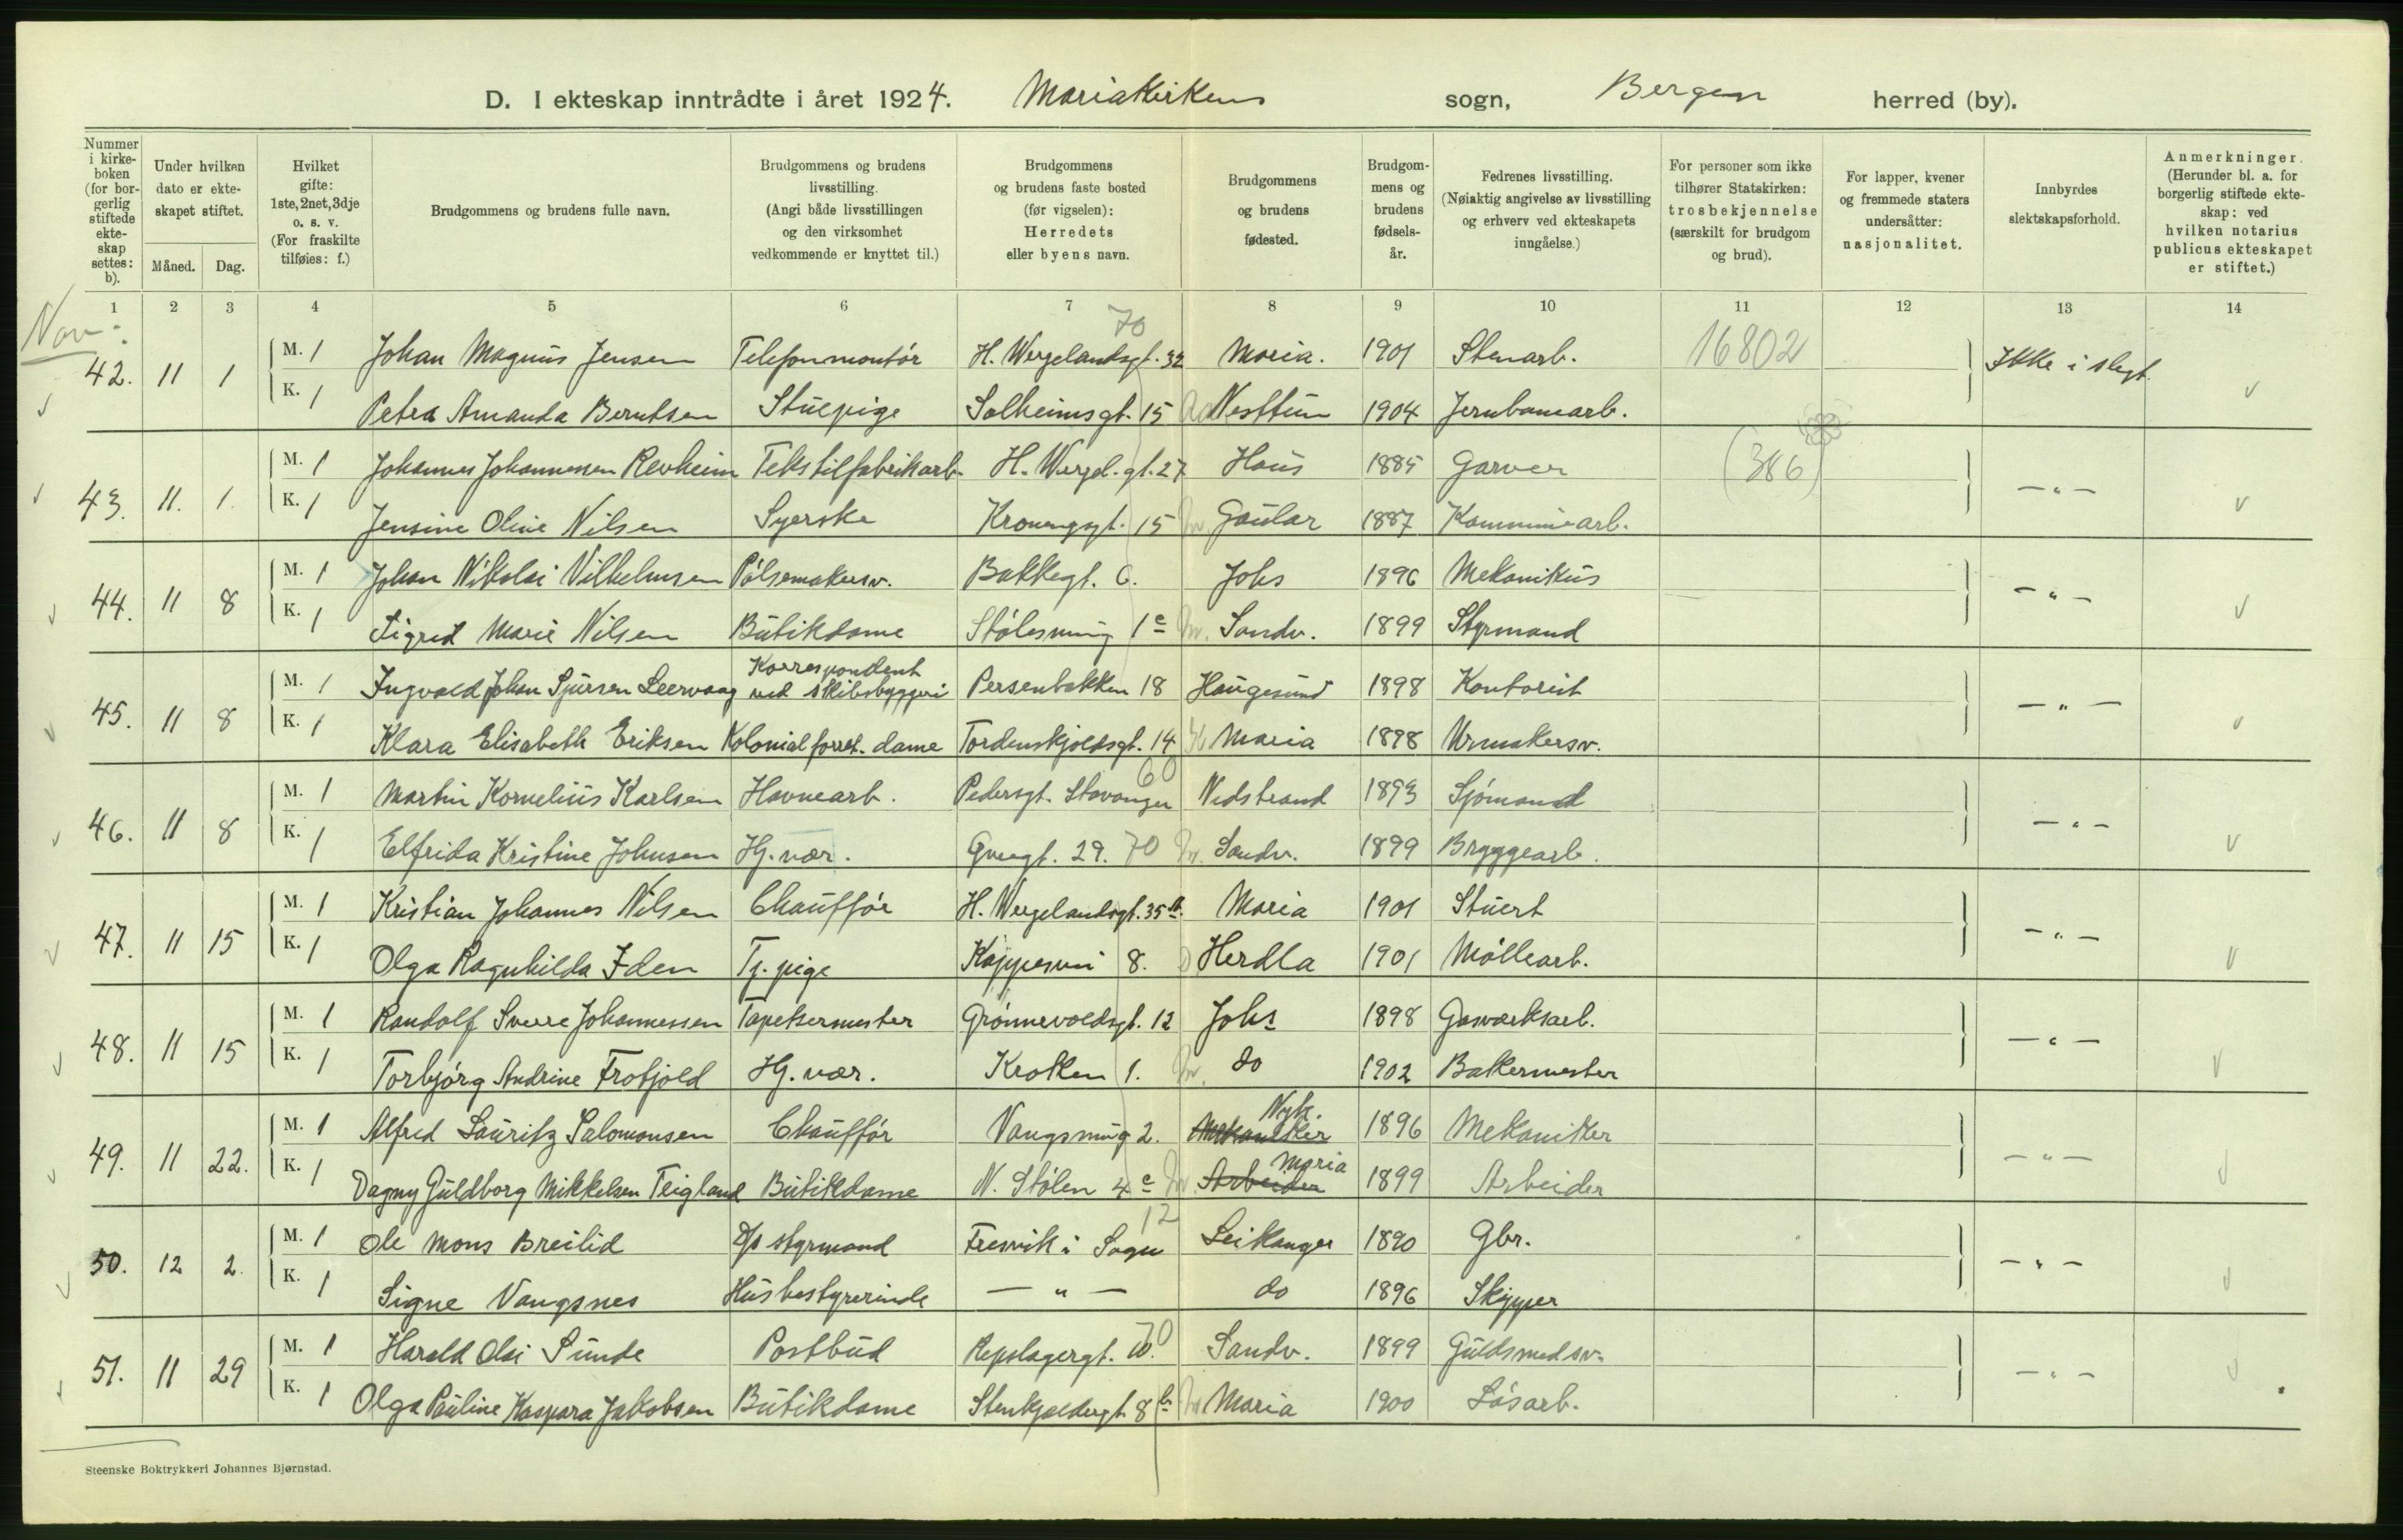 D. I ekteskap inntrådte i året 1924. Mariakirkens sogn, Bergen herred (by).
Nummer i kirke- boken (for bor- gerlig stiftede ekte- skap settes: b).
Under hvilken dato er ekte- skapet stiftet.
Måned. Dag.
Hvilket gifte: 1ste, 2net, 3dje o. s. v. (For fraskilte tilføies: f.)
Brudgommens og brudens fulle navn.
Brudgommens og brudens livsstilling. (Angi både livsstillingen og den virksomhet vedkommende er knyttet til.)
Brudgommens og brudens faste bosted (før vigselen): Herredets eller byens navn.
Brudgommens og brudens fødested.
Brudgom- mens og brudens fødsels- år.
Fedrenes livsstilling. (Nøiaktig angivelse av livsstilling og erhverv ved ekteskapets inngåelse.)
For personer som ikke tilhører Statskirken: trosbekjennelse (særskilt for brudgom og brud).
For lapper, kvener og fremmede staters undersåtter: nasjonalitet.
Innbyrdes slektskapsforhold.
Anmerkninger. (Herunder bl. a. for borgerlig stiftede ekte- skap: ved hvilken notarius publicus ekteskapet er stiftet.)
1 2 3 4 5 6 7 8 9 10 11 12 13 14
Nov. 70
42. 11 1 M. 1 Johan Magnus Jensen Telefonmontör H. Wergelandsgt. 32 Maria. 1901 Stenarb. 16802 Ikke i slegt.
K. 1 Petra Amanda Berntsen Stuepige Solheimsgt. 15 Nesttun 1904 Jernbanearb.
43. 11. 1. M. 1 Johannes Johannessen Revheim Tekstilfabrikarb. H. Wergel. gt. 27 Haus 1885 Garver (386) — " —
K. 1 Jensine Oline Nilsen Syerske Kronengsgt. 15 Gaular 1887 Kommunearb.
44. 11 8 M. 1 Johan Nikolai Vilhelmsen Pölsemakersv. Bakkegt. 6. Johs 1896 Mekanikus — " —
K. 1 Sigrid Marie Nilsen Butikdame Stölesmug 1 c Sandv. 1899 Styrmand
45. 11 8 M. 1 Ingvald Johan Sjursen Leervaag Korrespondent ved skibsbyggeri Persenbakken 18 Haugesund 1898 Kontorist — " —
K. 1 Klara Elisabeth Eriksen Kolonialforret. dame Tordenskjoldsgt. 14 Maria 1898 Urmakersv.
60
46. 11 8 M. 1 Martin Kornelius Karlsen Havnearb. Pedersgt. Stavanger Nedstrand 1893 Sjömand — " —
K. 1 Elfrida Kristine Johnsen Hj. vær. Øvregt. 29. 70 Sandv. 1899 Bryggearb.
47. 11 15 M. 1 Kristian Johannes Nilsen Chaufför H. Wergelandsgt. 35 b. Maria 1901 Stuert — " —
K. 1 Olga Ragnhilda Iden Tj. pige 8. Herdla 1901 Möllearb.
48. 11 15 M. 1 Randolf Sverre Johannessen Tapetsermester Grönnevoldsgt. 12 Johs 1898 Gasværksarb. — " —
K. 1 Torbjörg Andrine Frotjold Hj. vær. Kroken 1. do 1902 Bakermester
49. 11 22. M. 1 Alfred Lauritz Salomonsen Chaufför Vangsmug 2. Mekaniker Nyk. 1896 Mekaniker — " —
K. 1 Dagny Guldborg Mikkelsen Teigland Butikdame N. Stölen 4 c Arbeider Maria 1899 Arbeider
12
50. 12 2. M. 1 Ole Mons Breilid D/s styrmand Fresvik i Sogn Leikanger 1890 Gbr. — " —
K. 1 Signe Vangsnes Husbestyrerinde — " — do 1896 Skipper
51. 11 29 M. 1 Harald Olai Sunde Postbud Repslagergt. 10. 70 Sandv. 1899 Guldsmedsv. — " —
K. 1 Olga Pauline Kaspara Jakobsen Butikdame Stenkjeldergt. 8 b Maria 1900 Lösarb.
Steenske Boktrykkeri Johannes Bjørnstad.